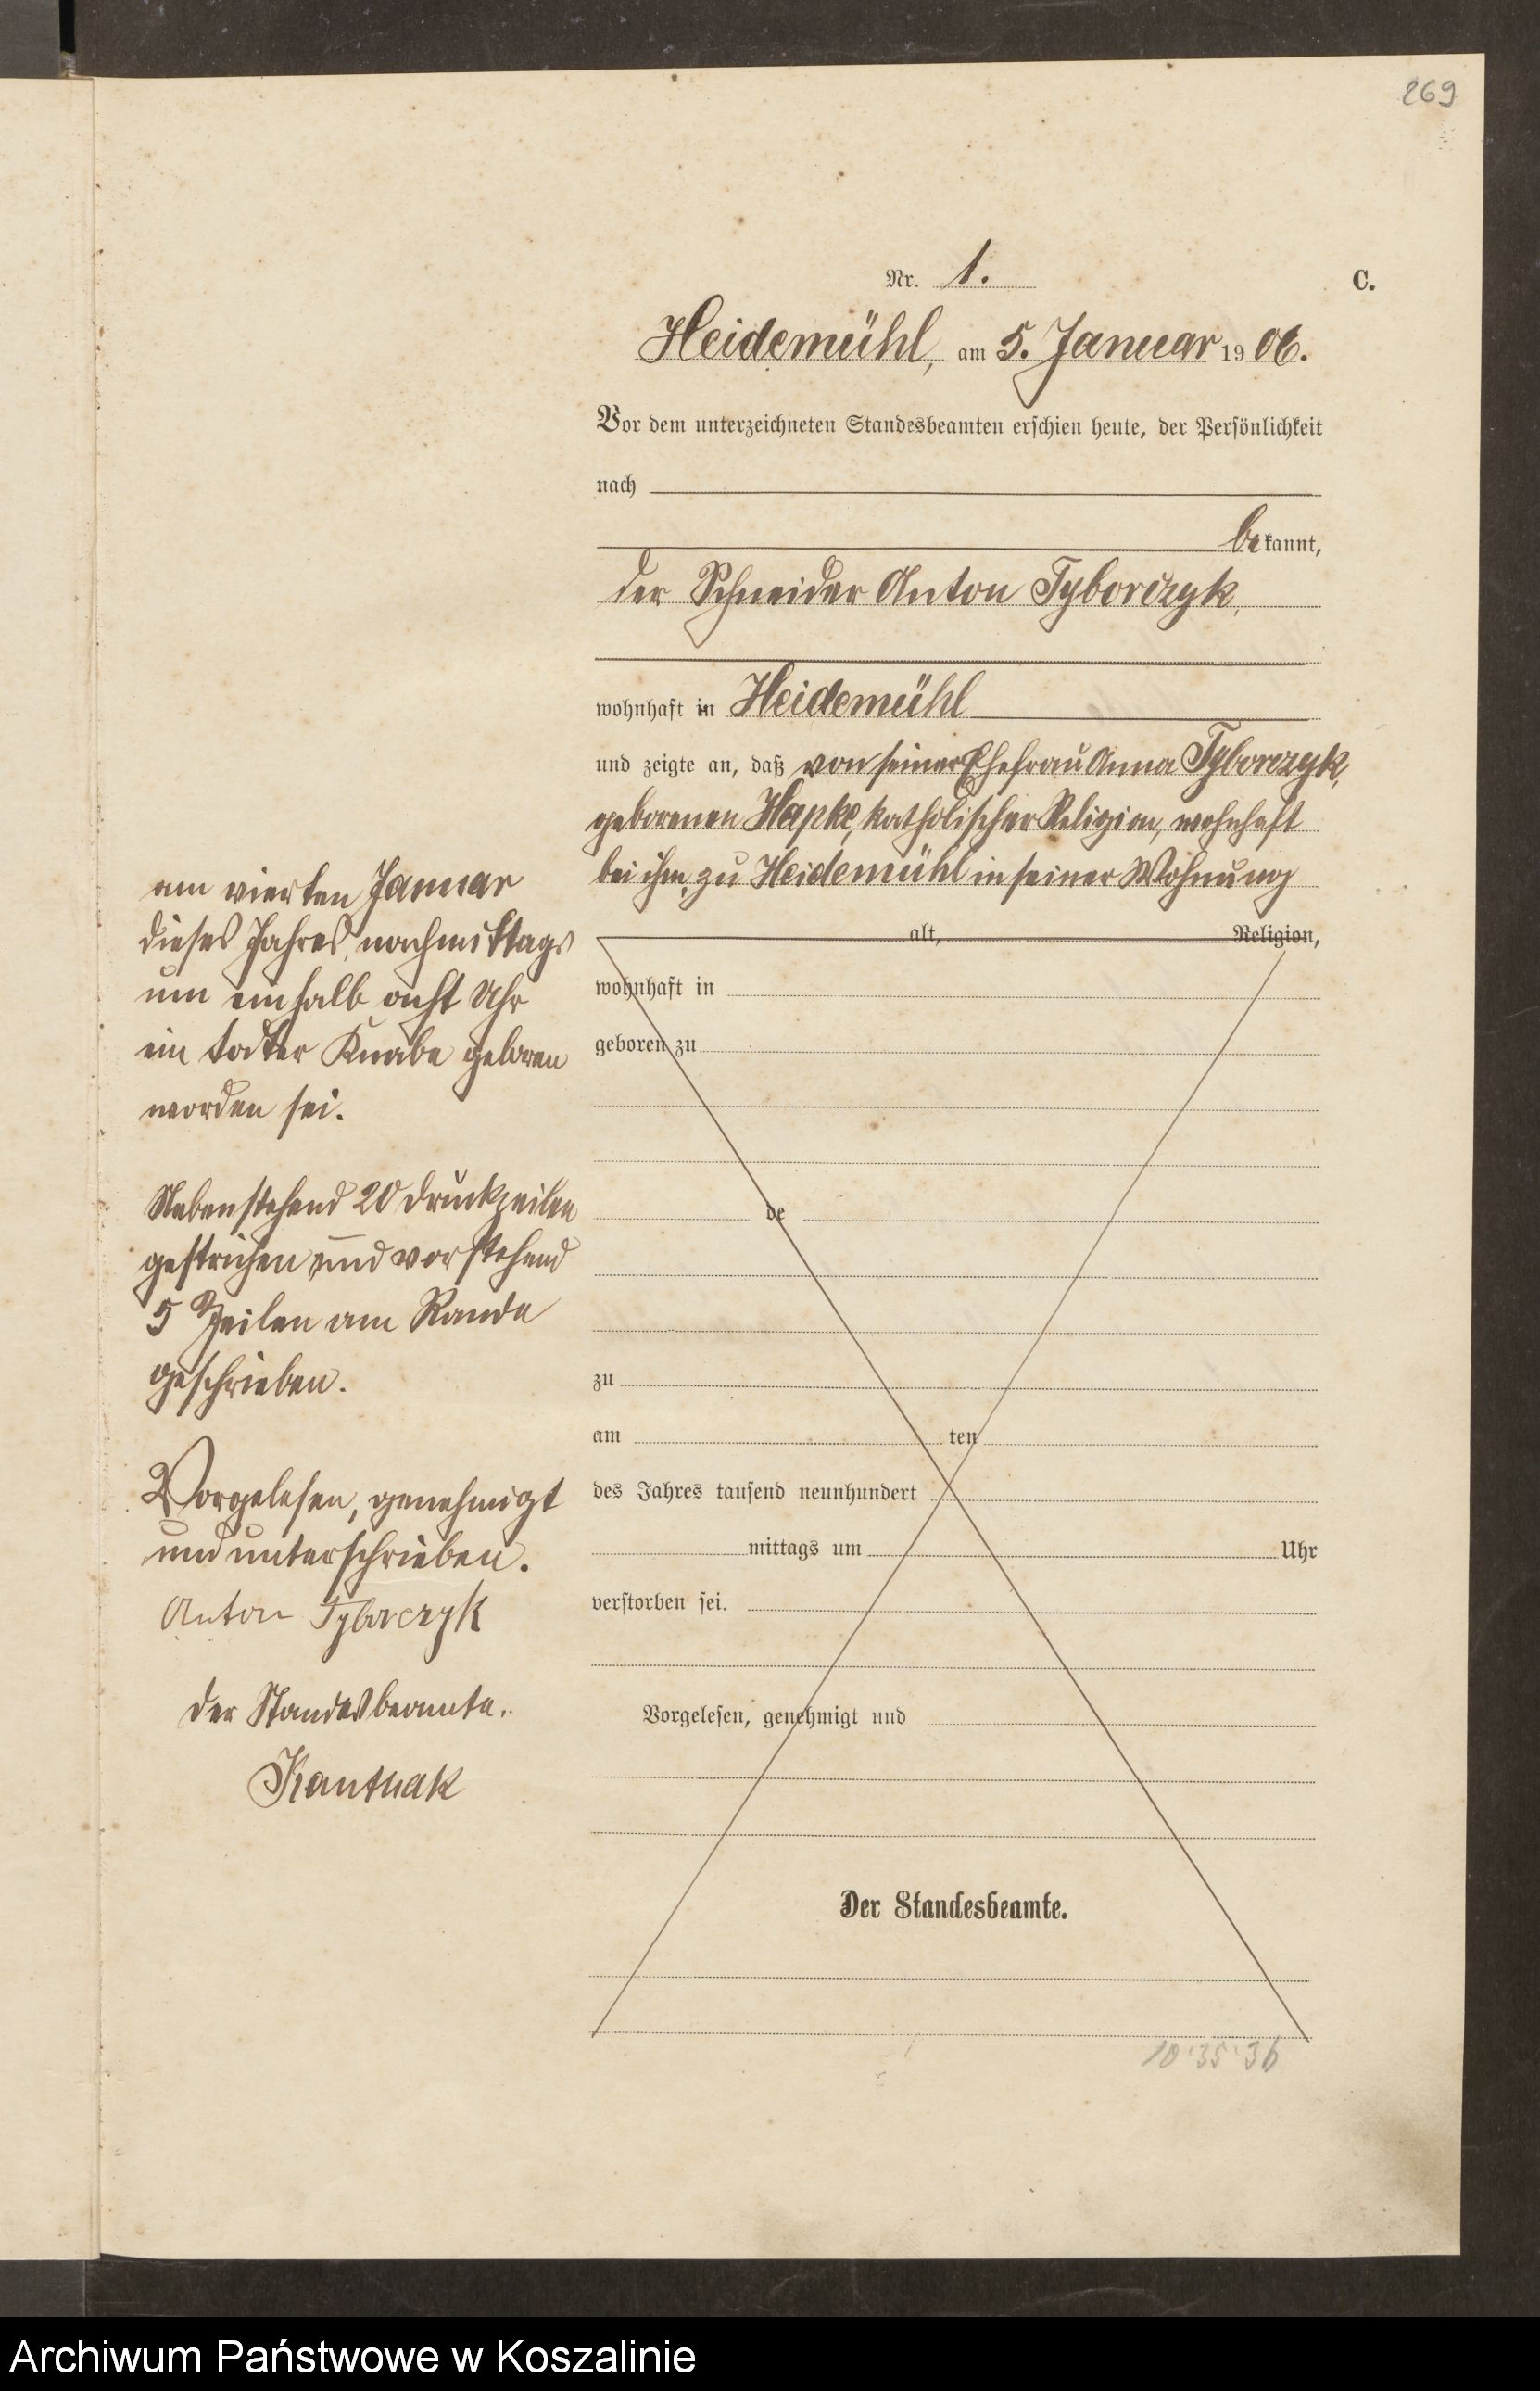 269
Nr. 1. C.
Heidemühl, am 5. Januar 1906.
Vor dem unterzeichneten Standesbeamten erschien heute, der Persönlichkeit
nach
bekannt,
der Schneider Anton Tyborczyk,
wohnhaft in Heidemühl
und zeigte an, daß von seiner Ehefrau Anna Tyborczyk,
geborenen Hapke, katholischer Religion, wohnhaft
bei ihm, zu Heidemühl in seiner Wohnung
am vierten Januar
dieses Jahres, nachmittags
um einhalb acht Uhr
ein todter Knabe geboren
worden sei.
Nebenstehend 20 Druckzeilen
gestrichen und vorstehend
5 Zeilen am Rande
geschrieben.
Vorgelesen, genehmigt
und unterschrieben.
Anton Tyborczyk
Der Standesbeamte.
Kantnak
alt, Religion,
wohnhaft in
geboren zu
de
zu
am ten
des Jahres tausend neunhundert
mittags um Uhr
verstorben sei.
Vorgelesen, genehmigt und
Der Standesbeamte.
10·35·36
Archiwum Państwowe w Koszalinie